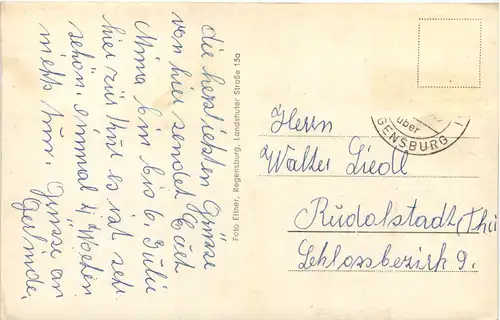 die herzlichsten Grüsse
von hier sendet Euch
Mina bin bis 6. Juli
hier zur Kur es ist sehr
schön. einmal 4 Wochen
nichts tun. Grüsse an
Gerinde.
Foto Eitner, Regensburg, Landshuter Straße 13a
über
GENSBURG 1
Herrn
Walter Liedl
Rudolstadt (Thü
Schlossbezirk 9.